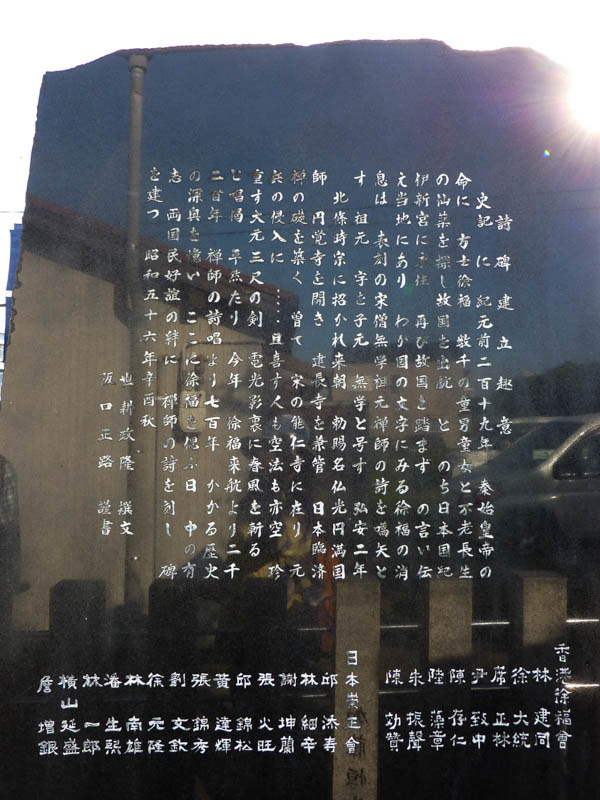 詩碑建立趣意
史記 に 紀元前二百十九年 秦始皇帝の
命に 方士徐福 数千の童男童女と不老長生
の仙薬を探し故国を出航 と のち日本国紀
伊新宮に永住 再び故国を踏まず の言い伝
え当地にあり わが国の文字にみる徐福の消
息は 表刻の宋僧無学祖元禅師の詩を嚆矢と
す 祖元 字と子元 無学と号す 弘安二年
北條時宗に招かれ来朝 勅賜名仏光円満国
師 円覚寺を開き 建長寺を兼管 日本臨済
禅の礎を築く 曽て 宋の能仁寺に在り 元
兵の侵入に ……且喜す人も空法も亦空 珍
重す大元三尺の剣 電光影裏に春風を斬る
と唱偈 平然たり 今年 徐福来航より二千
二百年 禅師の詩唱より七百年 かかる歴史
の深奥を憶い ここに徐福を偲ぶ日 中の有
志 両国民好誼の絆に 禅師の詩を刻し 碑
を建つ 昭和五十六年辛酉秋
也耕政隆 撰文
阪口正路 謹書
香港徐福會
林建同
徐大統
席正林
尹致中
陳存仁
陸藻章
朱振聲
陳効賛
日本崇正會
邱添寿
林細辛
謝坤蘭
張火旺
邱錦松
黄達輝
張錦秀
劉文欽
徐元隆
林南雄
潘生熙
林一郎
横山延盛
詹増銀